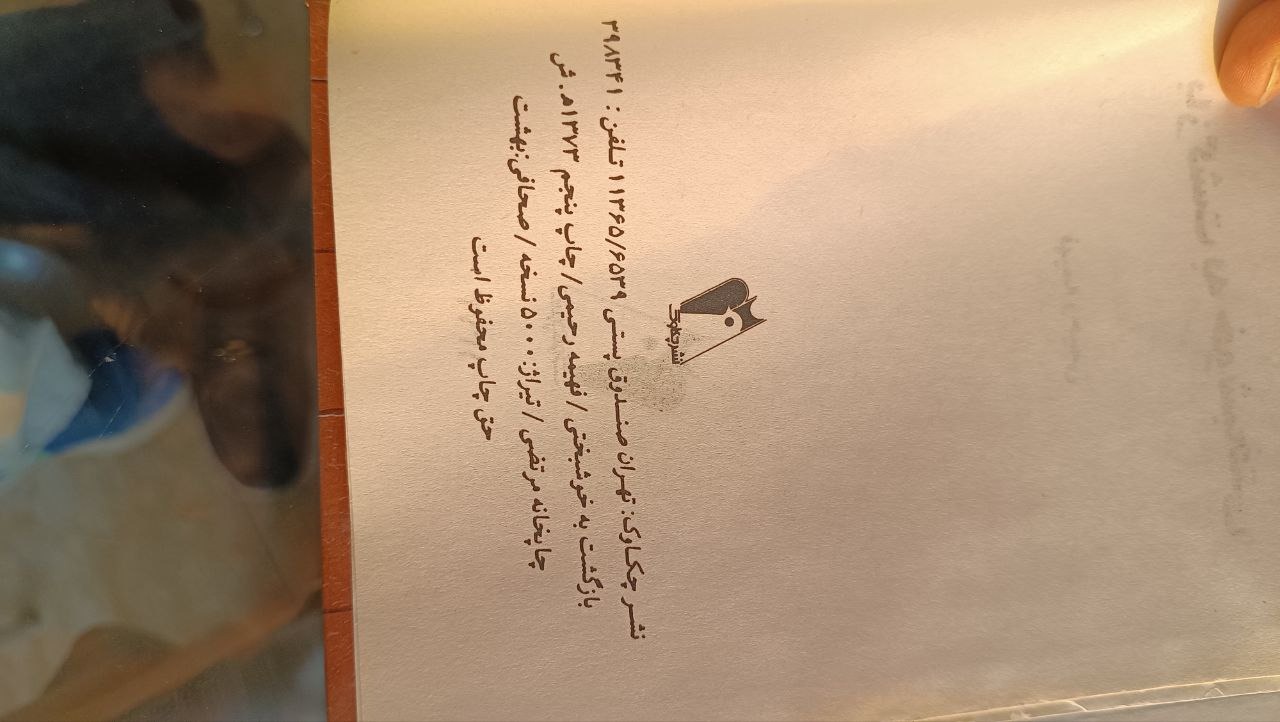 نشر چکاوک
نشر چکاوک: تهران صندوق پستی ۱۱۳۶۵/۶۵۳۹ تلفن: ۳۹۸۳۴۱
بازگشت به خوشبختی / فهیمه رحیمی / چاپ پنجم ۱۳۷۳ ه‍. ش
چاپخانه مرتضی / تیراژ: ۵۰۰۰ نسخه / صحافی: بهشت
حق چاپ محفوظ است